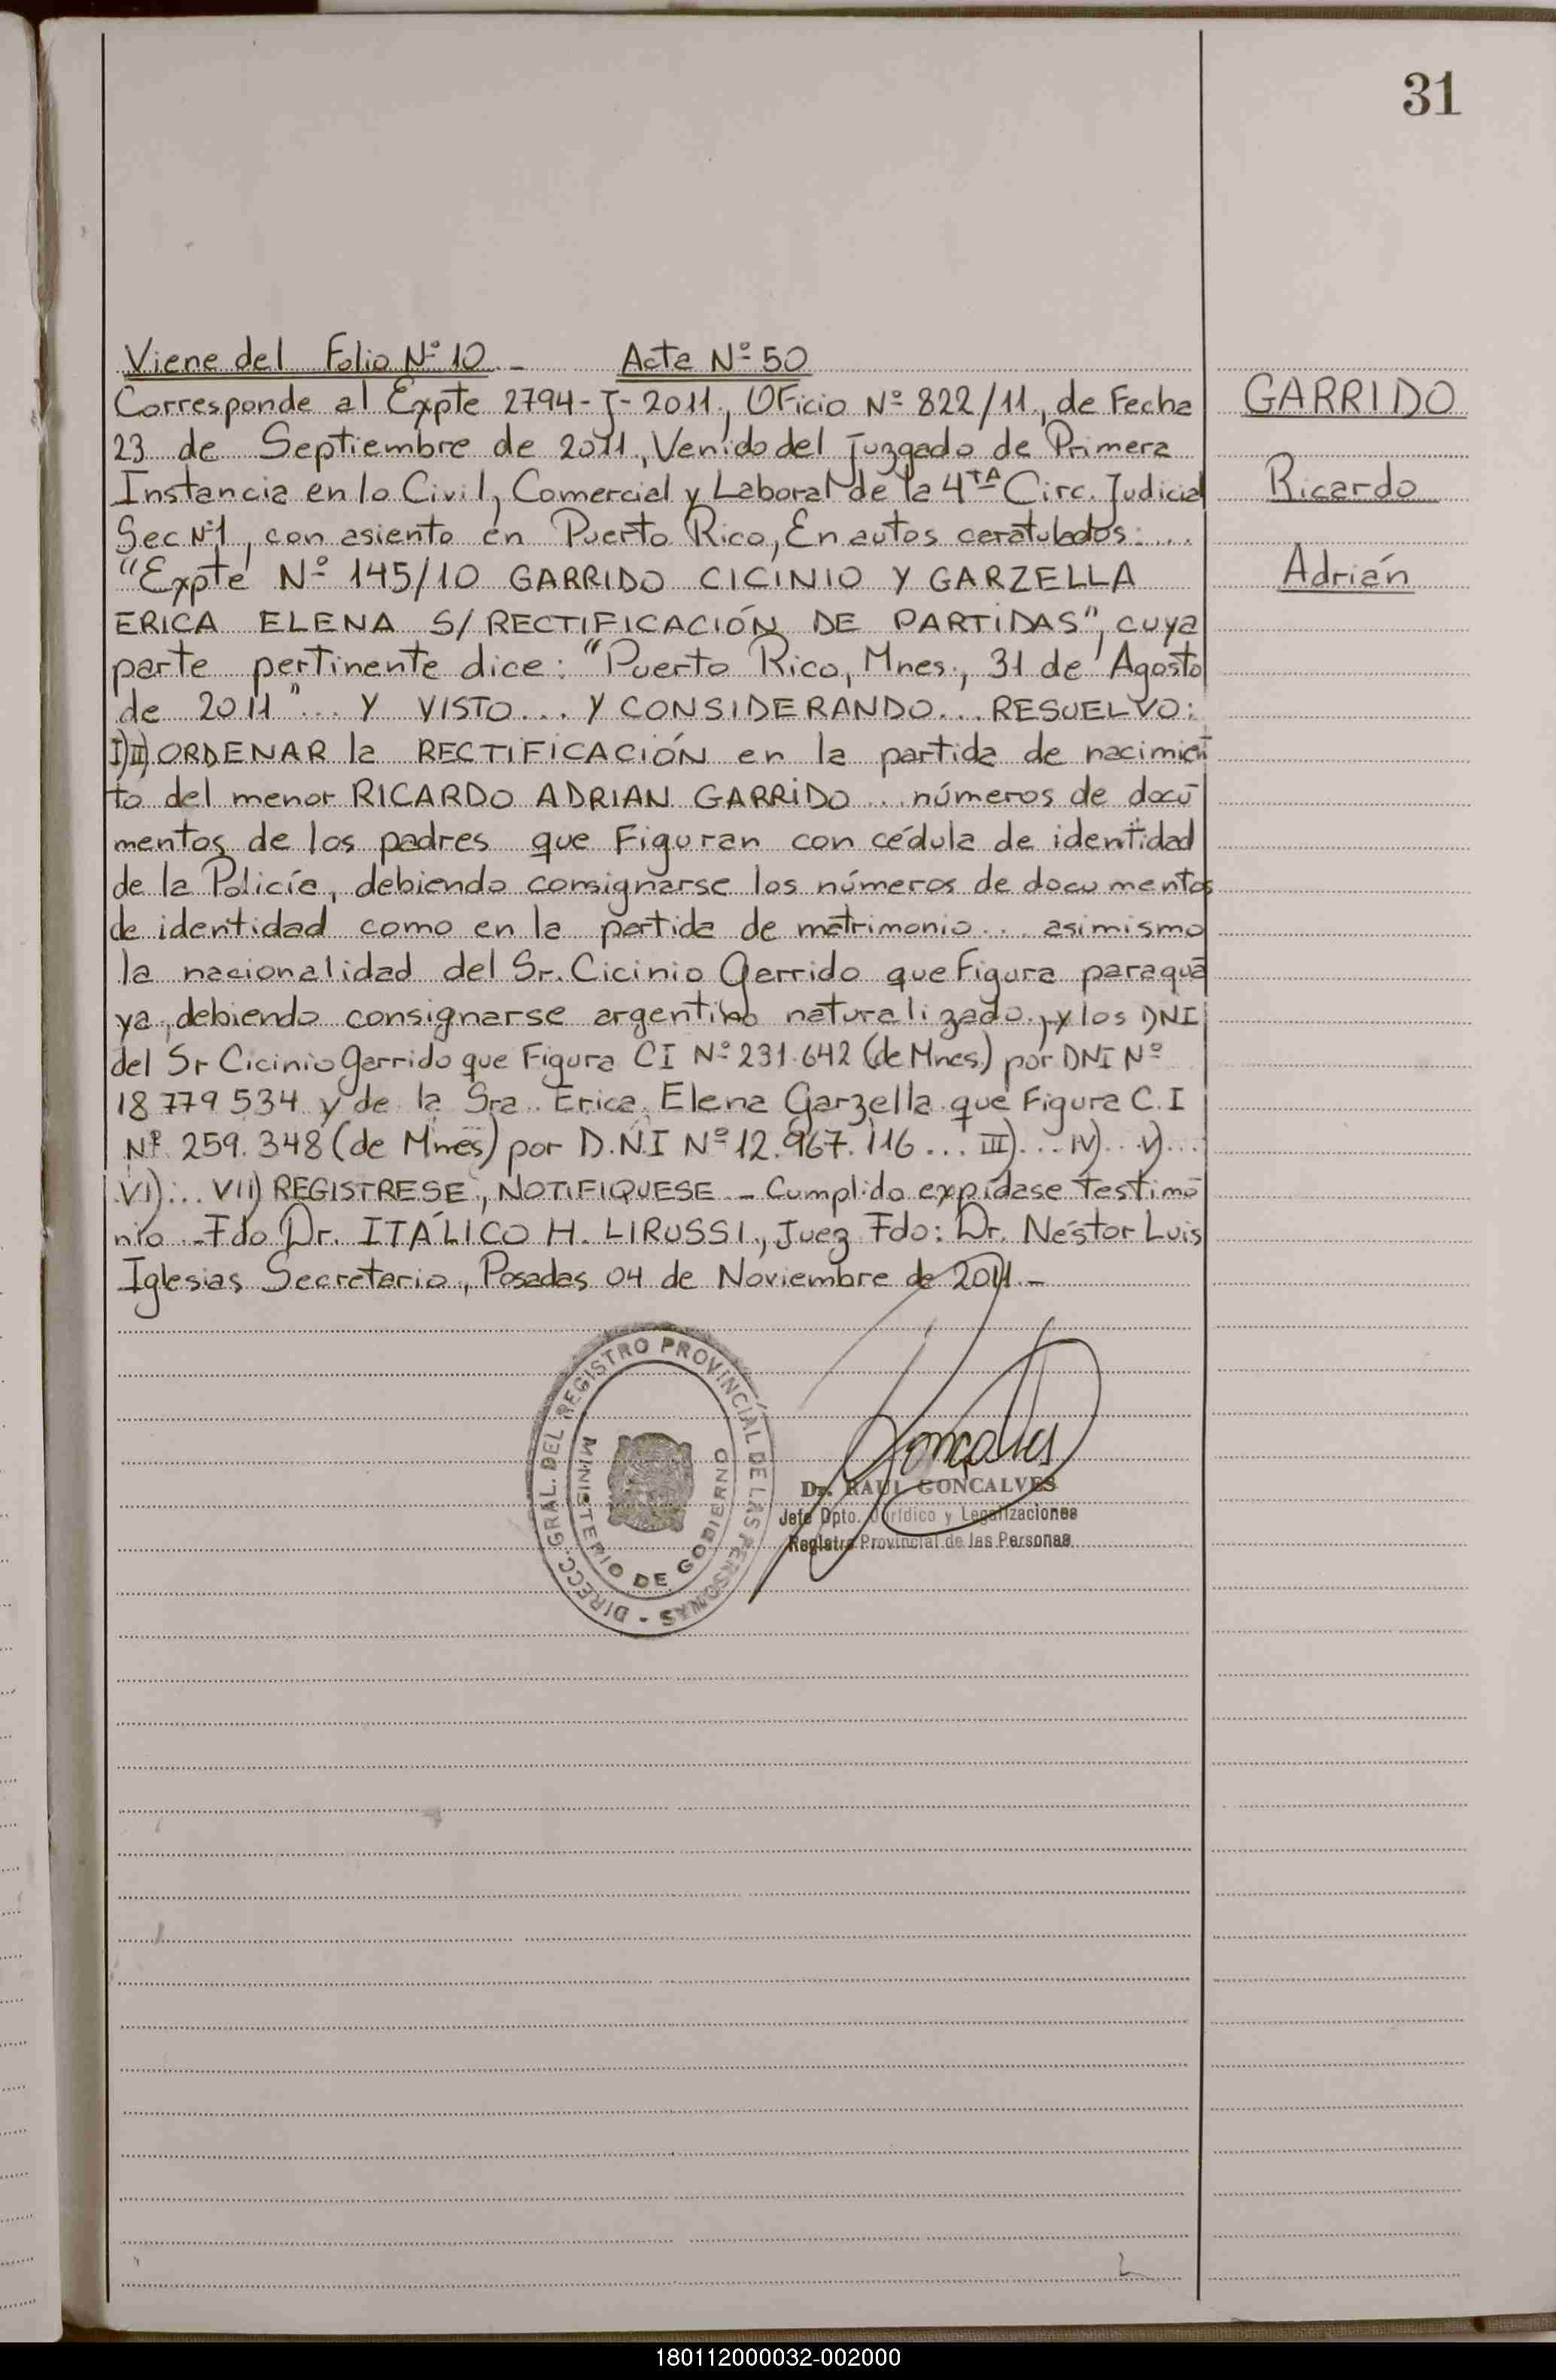 31
Viene del Folio Nº 10.- Acta Nº 50
Corresponde al Expte 2794-J-2011, Oficio Nº 822/11, de Fecha
23 de Septiembre de 2011, Venido del Juzgado de Primera
Instancia en lo Civil, Comercial y Laboral de la 4TA Circ. Judicial
Sec Nº1, con asiento en Puerto Rico, En autos caratulados:...
"Expte Nº 145/10 GARRIDO CICINIO Y GARZELLA
ERICA ELENA S/ RECTIFICACIÓN DE PARTIDAS", cuya
parte pertinente dice: "Puerto Rico, Mnes., 31 de Agosto
de 2011"... Y VISTO... Y CONSIDERANDO... RESUELVO:
I)II) ORDENAR la RECTIFICACIÓN en la partida de nacimien
to del menor RICARDO ADRIAN GARRIDO... números de docu
mentos de los padres que Figuran con cédula de identidad
de la Policía, debiendo consignarse los números de documentos
de identidad como en la partida de matrimonio... asimismo
la nacionalidad del Sr. Cicinio Garrido que Figura paragua
ya, debiendo consignarse argentino naturalizado, y los DNI
del Sr Cicinio Garrido que Figura CI Nº 231.642 (de Mnes.) por DNI Nº
18 779 534 y de la Sra. Erica Elena Garzella que Figura C.I
Nº 259.348 (de Mnes) por D.N.I Nº 12.967.116... III)... IV)... V)...
VI)... VII) REGISTRESE, NOTIFIQUESE - Cumplido expídase testimo
nio.-Fdo Dr. ITÁLICO H. LIRUSSI, Juez Fdo: Dr. Néstor Luis
Iglesias Secretario, Posadas 04 de Noviembre de 2011.-
GARRIDO
Ricardo
Adrián
DIRECC. GRAL. DEL REGISTRO PROVINCIAL DE LAS PERSONAS -
MINISTERIO DE GOBIERNO
Goncalves
Dr. RAUL GONCALVES
Jefe Dpto. Jurídico y Legalizaciones
Registro Provincial de las Personas
180112000032-002000